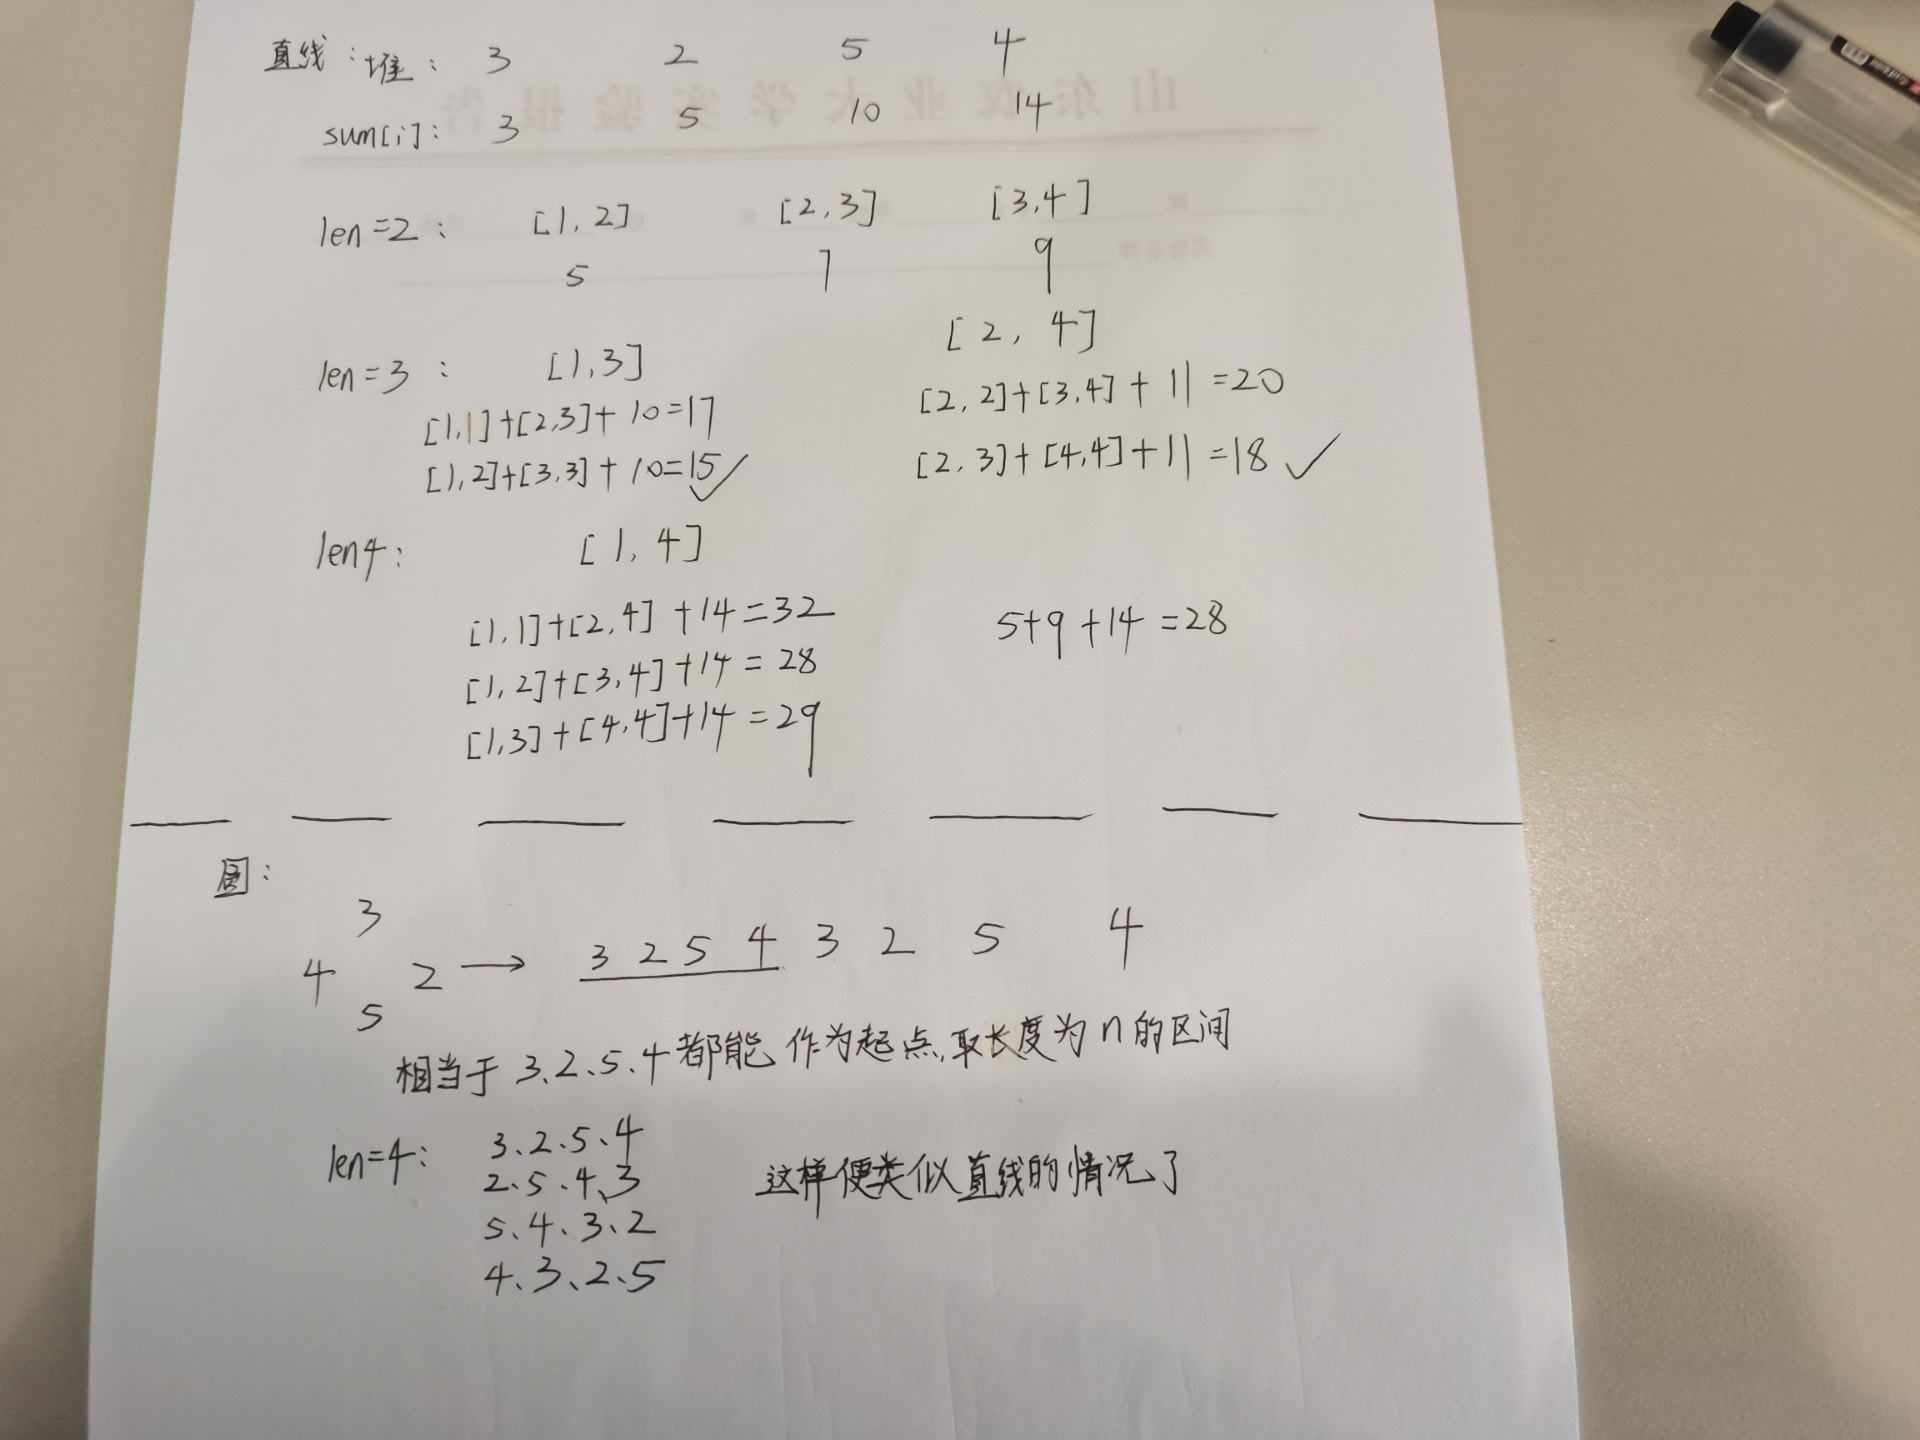 直线：堆： 3 2 5 4
sum[i]: 3 5 10 14
len=2： [1, 2] [2, 3] [3, 4]
5 7 9
len=3： [1, 3] [2, 4]
[1,1]+[2,3]+10=17 [2, 2]+[3, 4]+11=20
[1, 2]+[3,3]+10=15✓ [2, 3]+[4,4]+11=18 ✓
len4： [1, 4]
[1, 1]+[2, 4]+14=32 5+9+14=28
[1, 2]+[3, 4]+14=28
[1,3]+[4,4]+14=29
圆：
3
4 2 → 3 2 5 4 3 2 5 4
5
相当于 3、2、5、4都能作为起点，取长度为n的区间
len=4： 3、2、5、4
2、5、4、3 这样便类似直线的情况了
5、4、3、2
4、3、2、5
山东农业大学实验报告
实验名称